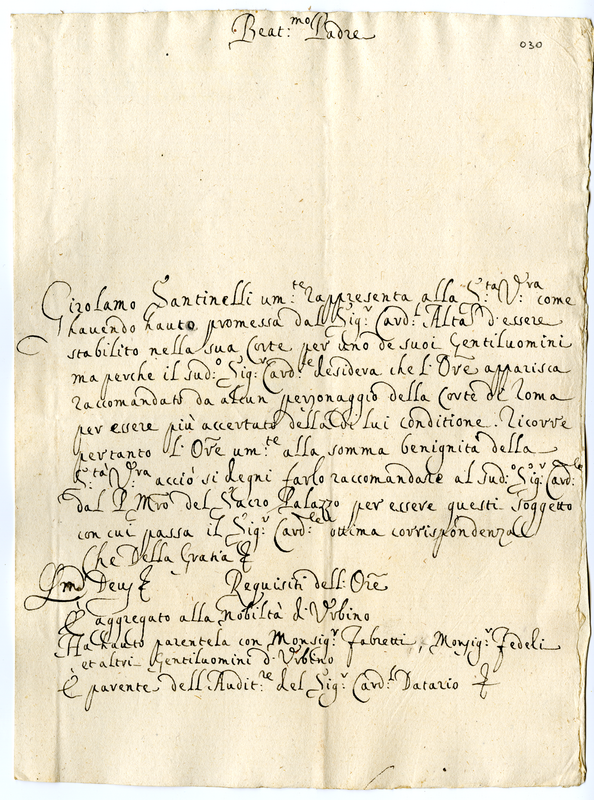 Beat:mo Padre
030
Girolamo Santinelli um:te rappresenta alla S:ta V:ra come
havendo hauto promessa dal Sig:r Card:l d'essere
stabilito nella sua Corte per uno de suoi Gentiluomini
ma perche il sud:o Sig:r Card:le desidera che l'Ore apparisca
raccomandato da alcun personaggio della Corte di Roma
per essere più accertato della di lui conditione. Ricorre
pertanto l'Ore um:te alla somma benignità della
S:tà V:ra acciò si degni farlo raccomandare al sud:o Sig:r Card:le
dal P. Mro del Sacro Palazzo per essere questi soggetto
con cui passa il Sig:r Card:le ottima corrispondenza
Che Della Gratia &
Deus & Requisiti dell'Ore
È aggregato alla Nobiltà d'Urbino
Ha hauto parentela con Monsig:r Fabretti, Monsig:r Fedeli
et altri Gentiluomini d'Urbino
È parente dell'Audit:re del Sig:r Card:l Datario &